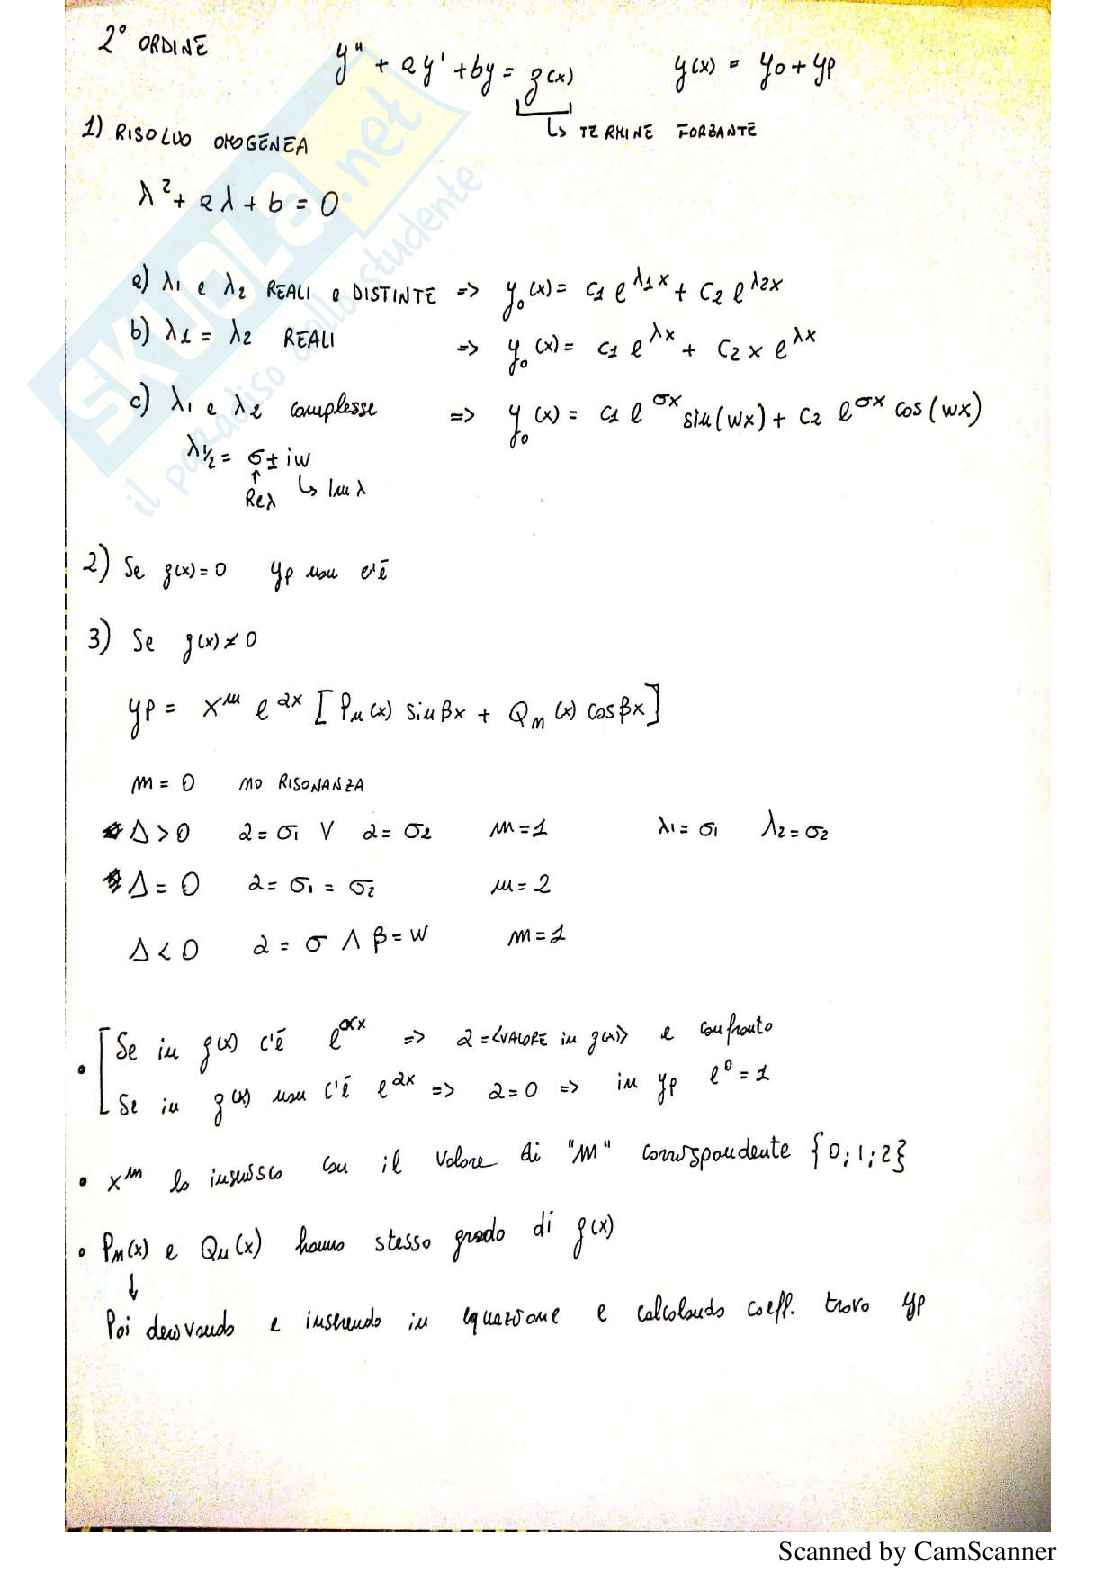 2° ORDINE
y'' + ay' + by = g(x)    y(x) = yo + yp
↳ TERMINE FORZANTE
1) RISOLVO OMOGENEA
λ² + aλ + b = 0
a) λ1 e λ2 REALI e DISTINTE => yo(x) = c1 e^λ1x + c2 e^λ2x
b) λ1 = λ2 REALI => yo(x) = c1 e^λx + c2 x e^λx
c) λ1 e λ2 complesse => yo(x) = c1 e^σx sin(wx) + c2 e^σx cos(wx)
λ1/2 = σ ± iw
↑ Reλ ↳ Im λ
2) Se g(x) = 0 yp non c'è
3) Se g(x) ≠ 0
yp = x^m e^αx [Pn(x) sin βx + Qn(x) cos βx]
m = 0 NO RISONANZA
Δ > 0 α = σ1 V α = σ2 m = 1 λ1 = σ1 λ2 = σ2
Δ = 0 α = σ1 = σ2 m = 2
Δ < 0 α = σ Λ β = w m = 1
• Se in g(x) c'è e^αx => α = <VALORE in g(x)> e confronto
Se in g(x) non c'è e^αx => α = 0 => in yp e^0 = 1
• x^m lo inserisco con il valore di "m" corrispondente {0; 1; 2}
• Pn(x) e Qn(x) hanno stesso grado di g(x)
↓
Poi derivando e inserendo in equazione e calcolando coeff. trovo yp
SKUOLA.net
il paradiso dello studente
Scanned by CamScanner